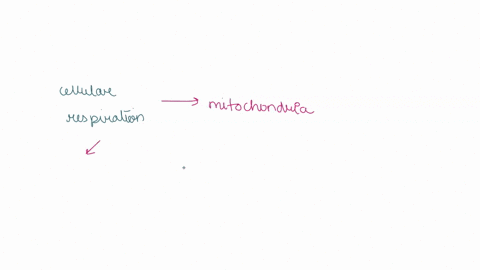 cellular
mitochondria
respiration